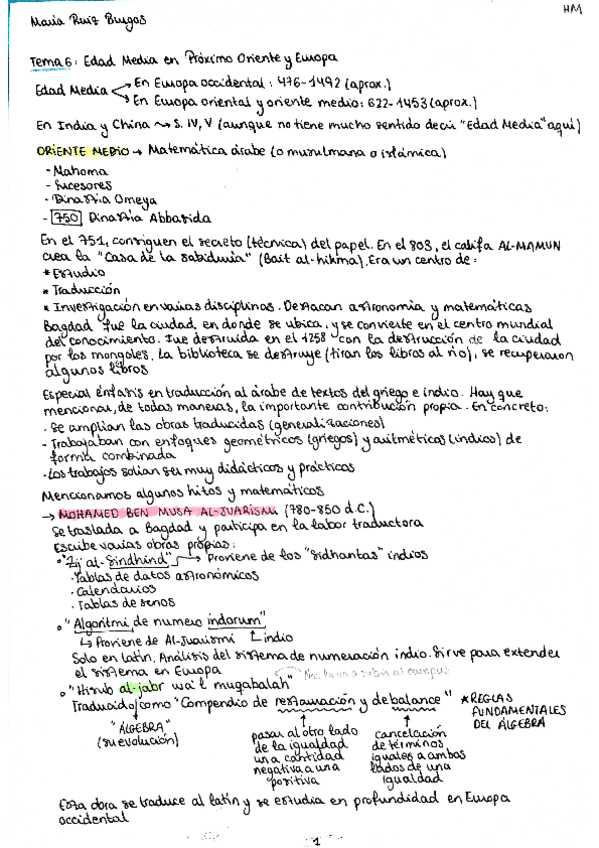 HM
Maria Ruiz Burgos
Tema 6: Edad Media en Próximo Oriente y Europa
Edad Media
En Europa occidental: 476-1492 (aprox.)
En Europa oriental y oriente medio: 622-1453 (aprox.)
En India y China ⇝ S. IV, V (aunque no tiene mucho sentido decir "Edad Media" aquí)
ORIENTE MEDIO → Matemática árabe (o musulmana o islámica)
- Mahoma
- Sucesores
- Dinastía Omeya
- 750 Dinastía Abbasida
En el 751, consiguen el secreto (técnica) del papel. En el 803, el califa AL-MAMUN
crea la "Casa de la sabiduría" (Bait al-hikma). Era un centro de:
* Estudio
* Traducción
* Investigación en varias disciplinas. Destacan astronomía y matemáticas
Bagdad fue la ciudad en donde se ubica, y se convierte en el centro mundial
del conocimiento. Fue destruida en el 1258 con la destrucción de la ciudad
por los mongoles. La biblioteca se destruye (tiran los libros al río), se recuperaron
algunos libros
Especial énfasis en traducción al árabe de textos del griego e indio. Hay que
mencionar, de todas maneras, la importante contribución propia. En concreto:
· Se amplían las obras traducidas (generalizaciones)
- Trabajaban con enfoques geométricos (griegos) y aritméticas (indios) de
forma combinada
· Los trabajos solían ser muy didácticos y prácticos
Mencionamos algunos hitos y matemáticos
→ MOHAMED BEN MUSA AL-JUARISMI (780-850 d.C.)
Se traslada a Bagdad y participa en la labor traductora
Escribe varias obras propias:
° "Zij al-Sindhind" → Proviene de los "Sidhantas" indios
· Tablas de datos astronómicos
· Calendarios
· Tablas de senos
° "Algoritmi de numero indorum"
↳ Proviene de Al-Juarismi
indio
Solo en latín. Análisis del sistema de numeración indio. Sirve para extender
el sistema en Europa
° "Hisub al-jabr wa'l muqabalah"
Traducido como "Compendio de restauración y de balance"
* REGLAS
FUNDAMENTALES
DEL ÁLGEBRA
"ÁLGEBRA"
(su evolución)
pasar al otro lado
de la igualdad
una cantidad
negativa a una
positiva
cancelación
de términos
iguales a ambos
lados de una
igualdad
Esta obra se traduce al latín y se estudia en profundidad en Europa
occidental
1